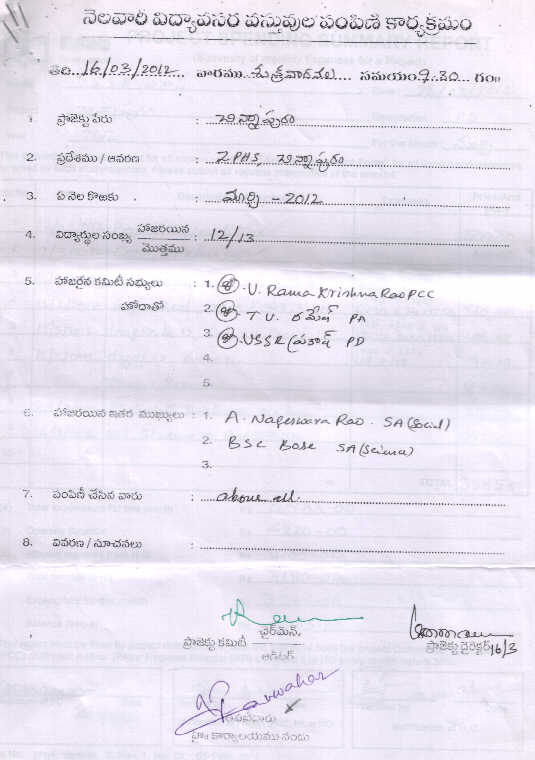 నెలవారీ విద్యావసర వస్తువుల పంపిణి కార్యక్రమం
తేది..16/03/2012.... వారము. శుక్రవారము.... సమయం.9.30... గం॥
1. ప్రాజెక్టు పేరు : చిన్నాపురం
2. ప్రదేశము / ఆవరణ : ZPHS, చిన్నాపురం
3. ఏ నెల కొఱకు : మార్చి - 2012
4. విద్యార్థుల సంఖ్య హాజరయిన : 12/13
మొత్తము
5. హాజరైన కమిటీ సభ్యులు : 1. శ్రీ. U. Rama Krishna Rao PCC
హోదాతో 2. శ్రీ. T U. రమేష్ PA
3. శ్రీ. USSR ప్రకాష్ PD
4.
5.
6. హాజరయిన ఇతర ముఖ్యులు : 1. A. Nageswara Rao. SA (Social)
2. BSC Bose SA (Science)
3.
7. పంపిణీ చేసిన వారు : above all.
8. వివరణ / సూచనలు :
ప్రాజెక్టు కమిటీ చైర్‌మెన్.
ఆడిటర్
ప్రాజెక్టు డైరెక్టర్ 16/3
కార్యాలయము నందు